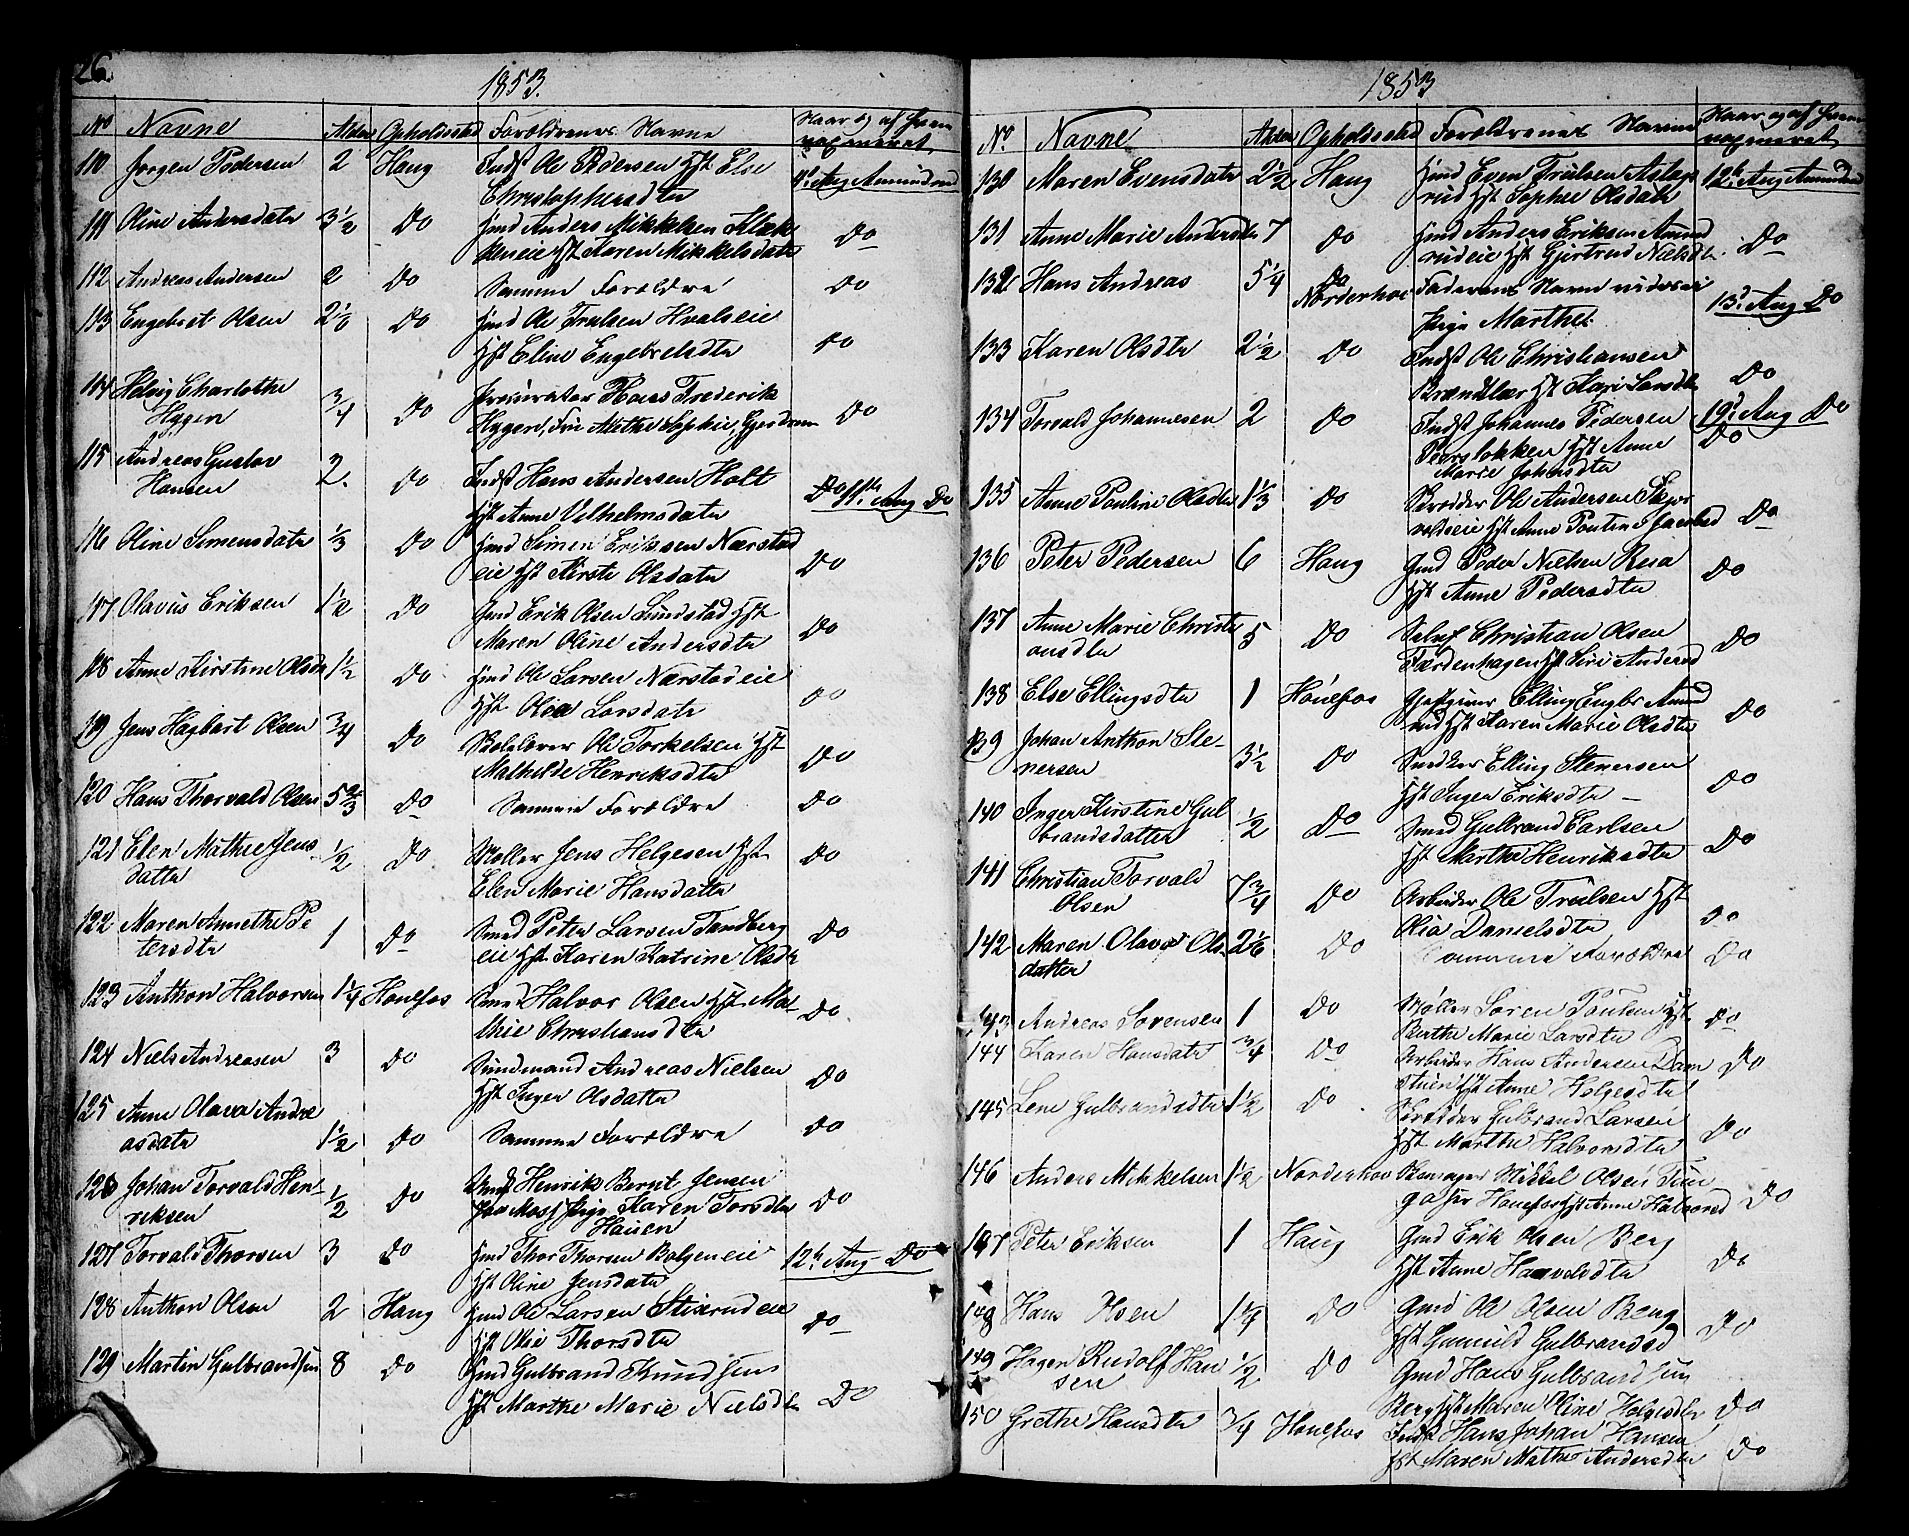 26.
1853.
No Navne Alder Opholdssted Forældrenes Navne Naar og af hvem
vaxineret
110 Jørgen Pedersen 2 Haug Indst Ole Pedersen Hst Else
Christophersdtr
Aug Amundrud
111 Oline Andersdatr 3 1/2 Do Hmd Anders Mikkelsen Klæk
keneie Hst Karen Mikkelsdatr
Do
112 Andreas Andersen 2 Do Samme Forældre Do
113 Engebret Olsen Do Hmd Ole Trulsen Hvalseie
Hst Eline Engebretsdtr
Do
114 Helvig Charlotthe
Hygen
3/4 Do Procurator Hans Frederik
Hygen, Fru Sophie, Gjerdrum
Do
115 Andreas Gustav
Hansen
2. Do Indst Hans Andersen Holt
Hst Anne Vilhelmsdatr
11te Aug Do
116 Oline Simensdatr 1/3 Do Hmd Simen Eriksen Nærstad
eie Hst Kirsti Olsdatr
Do
117 Olavus Eriksen 1 1/2 Do Gmd Erik Olsen Sundstad Hst
Maren Oline Andersdtr
Do
118 Anne Kirstine Olsdr 1 1/2 Do Hmd Ole Larsen Nærstadeie
Hst Olea Larsdatr
Do
119 Jens Hagbart Olsen 3/4 Do Ole Torkelsen Hst
Mathilde Henriksdtr
Do
120 Hans Thorvald Olsen 5 2/3 Do Samme Forældre Do
121 Elen Mathie Jens-
datter
1/2 Do Møller Jens Helgesen Hst
Elen Marie Hansdatter
Do
122 Maren Annethe Pe
tersdtr
1 Do Smed Peter Larsen Tandberg
eie Hst Karen Katrine Olsdtr
Do
123 Anthon Halvorsen 1 1/4 Hønefos Smed Halvor Olsen Hst Ma-
thie Christiansdtr
Do
124 Niels Andreasen 3 Do Sundmand Andreas Nielsen
Hst Inger Olsdatter
Do
125 Anne Olava Andre
asdatr
1 1/2 Do Samme Forældre Do
126 Johan Torvald Hen-
riksen
1/2 Do Smed Henrik Bernt Jensen
Pige Karen Torsdtr
Hauen
Do
127 Torvald Thorsen 3 Do Hmd Thor Thorsen Bølgeneie
Hst Oline Jensdatr
12te Aug Do
128 Anthon Olsen 2 Haug Hmd Ole Larsen Stixrudeie
Hst Olia Thorsdtr
Do
129 Martin Gulbrandsen 8 Do Hmd Gulbrand Knudsen
Hst Marthe Marie Nielsdtr
Do
1853
No. Navne Alder Opholdssted Forældrenes Navne Naar og af hvem
vaxineret
130 Maren Evensdatr 2 1/2 Haug Hmd Even Trulsen Aslag
rud Hst Sophie Olsdatr
12te Aug Amundrud
131 Anne Marie Andersdtr 7 Do Hmd Anders Eriksen Amund
rudeie Hst Gjertrud Nielsdtr.
Do
132 Hans Andreas 5 1/4 Do
Norderhov
Faderens Navn
Pige Marthe
13de Aug Do
133 Karen Olsdtr 2 1/2 Do Indst Ole Christiansen
Hst Kari Larsdtr
Do
134 Torvald Johannesen 2 Do Indst Johannes Pedersen
Hst Anne
Marie Johnsdtr
19de Aug Do
Do
135 Anne Pauline Olsdtr 1 1/3 Do Skrædder Ole Andersen
Hst Anne
Do
136 Peter Pedersen 6 Haug Gmd Peder Nielsen Resa
Hst Anne Pedersdtr
Do
137 Anne Marie Christi
ansdtr
5 Do Selvf Christian Olsen
Færdenhagen Hst Siri Andersd
Do
138 Else Ellingsdtr 1 Hønefos Gjestgiver Elling Engbr Amund
rud Hst Karen Marie Olsdtr
Do
139 Johan Anthon Ste-
nersen
3 1/2 Do Snedker Elling Stenersen
Hst Inger Eriksdtr
Do
140 Inger Kirstine Gul
brandsdatter
1/2 Do Smed Gulbrand Carlsen
Hst Marthe Henriksdtr
Do
141 Christian Torvald
Olsen
7 3/4 Do Arbeider Ole Trulsen Hst
Olia Danielsdtr
Do
142 Maren Olava Ols-
datter
2 1/6 Do Samme Forældre Do
143 Andreas Sørensen 1 Do Møller Søren Poulsen Hst
Berthe Marie Larsdtr
Do
144 Karen Hansdatr 3/4 Do Arbeider Hans Andersen Dam
stuen Hst Anne Helgesdtr
Do
145 Lene Gulbrandsdtr 1 1/2 Do Skrædder Gulbrand Larsen
Hst Marthe Halvorsdtr
Do
146 Anders Mikkelsen 1 1/2 Norderhov Mikkel Olsen
Hønefos Hst Anne Halvorsd
Do
147 Peter Eriksen 1 Haug Gmd Erik Olsen Berg
Hst Anne Haavelsdtr
Do
148 Hans Olsen 1 1/4 Do Gmd Ole Olsen Berg
Hst Gunild Gulbrandsd
Do
149 Hagen Rudolf Han
sen
1/2 Do Gmd Hans Gulbrandsen
Berg Hst Maren Oline Helgesdtr
Do
150 Grethe Hansdtr 3/4 Hønefos Indst Hans Johan Hansen
Hst Maren Mathe Andersdtr
Do